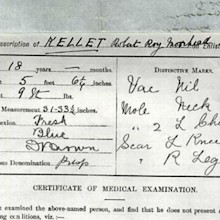 escription of KELLET Robert Roy on Enlist
18 years — months.
5 feet 6½ inches
9 st lbs
Measurement 31-33½ inches
exion Fresh
Blue
D Brown
ious Denomination Presp
DISTINCTIVE MARKS.
Vac Nil
Mole Neck
" 2 L Ch
Scar L Knee
" R Leg
CERTIFICATE OF MEDICAL EXAMINATION.
e examined the above-named person, and find that he does not present
ng conditions, viz. :—